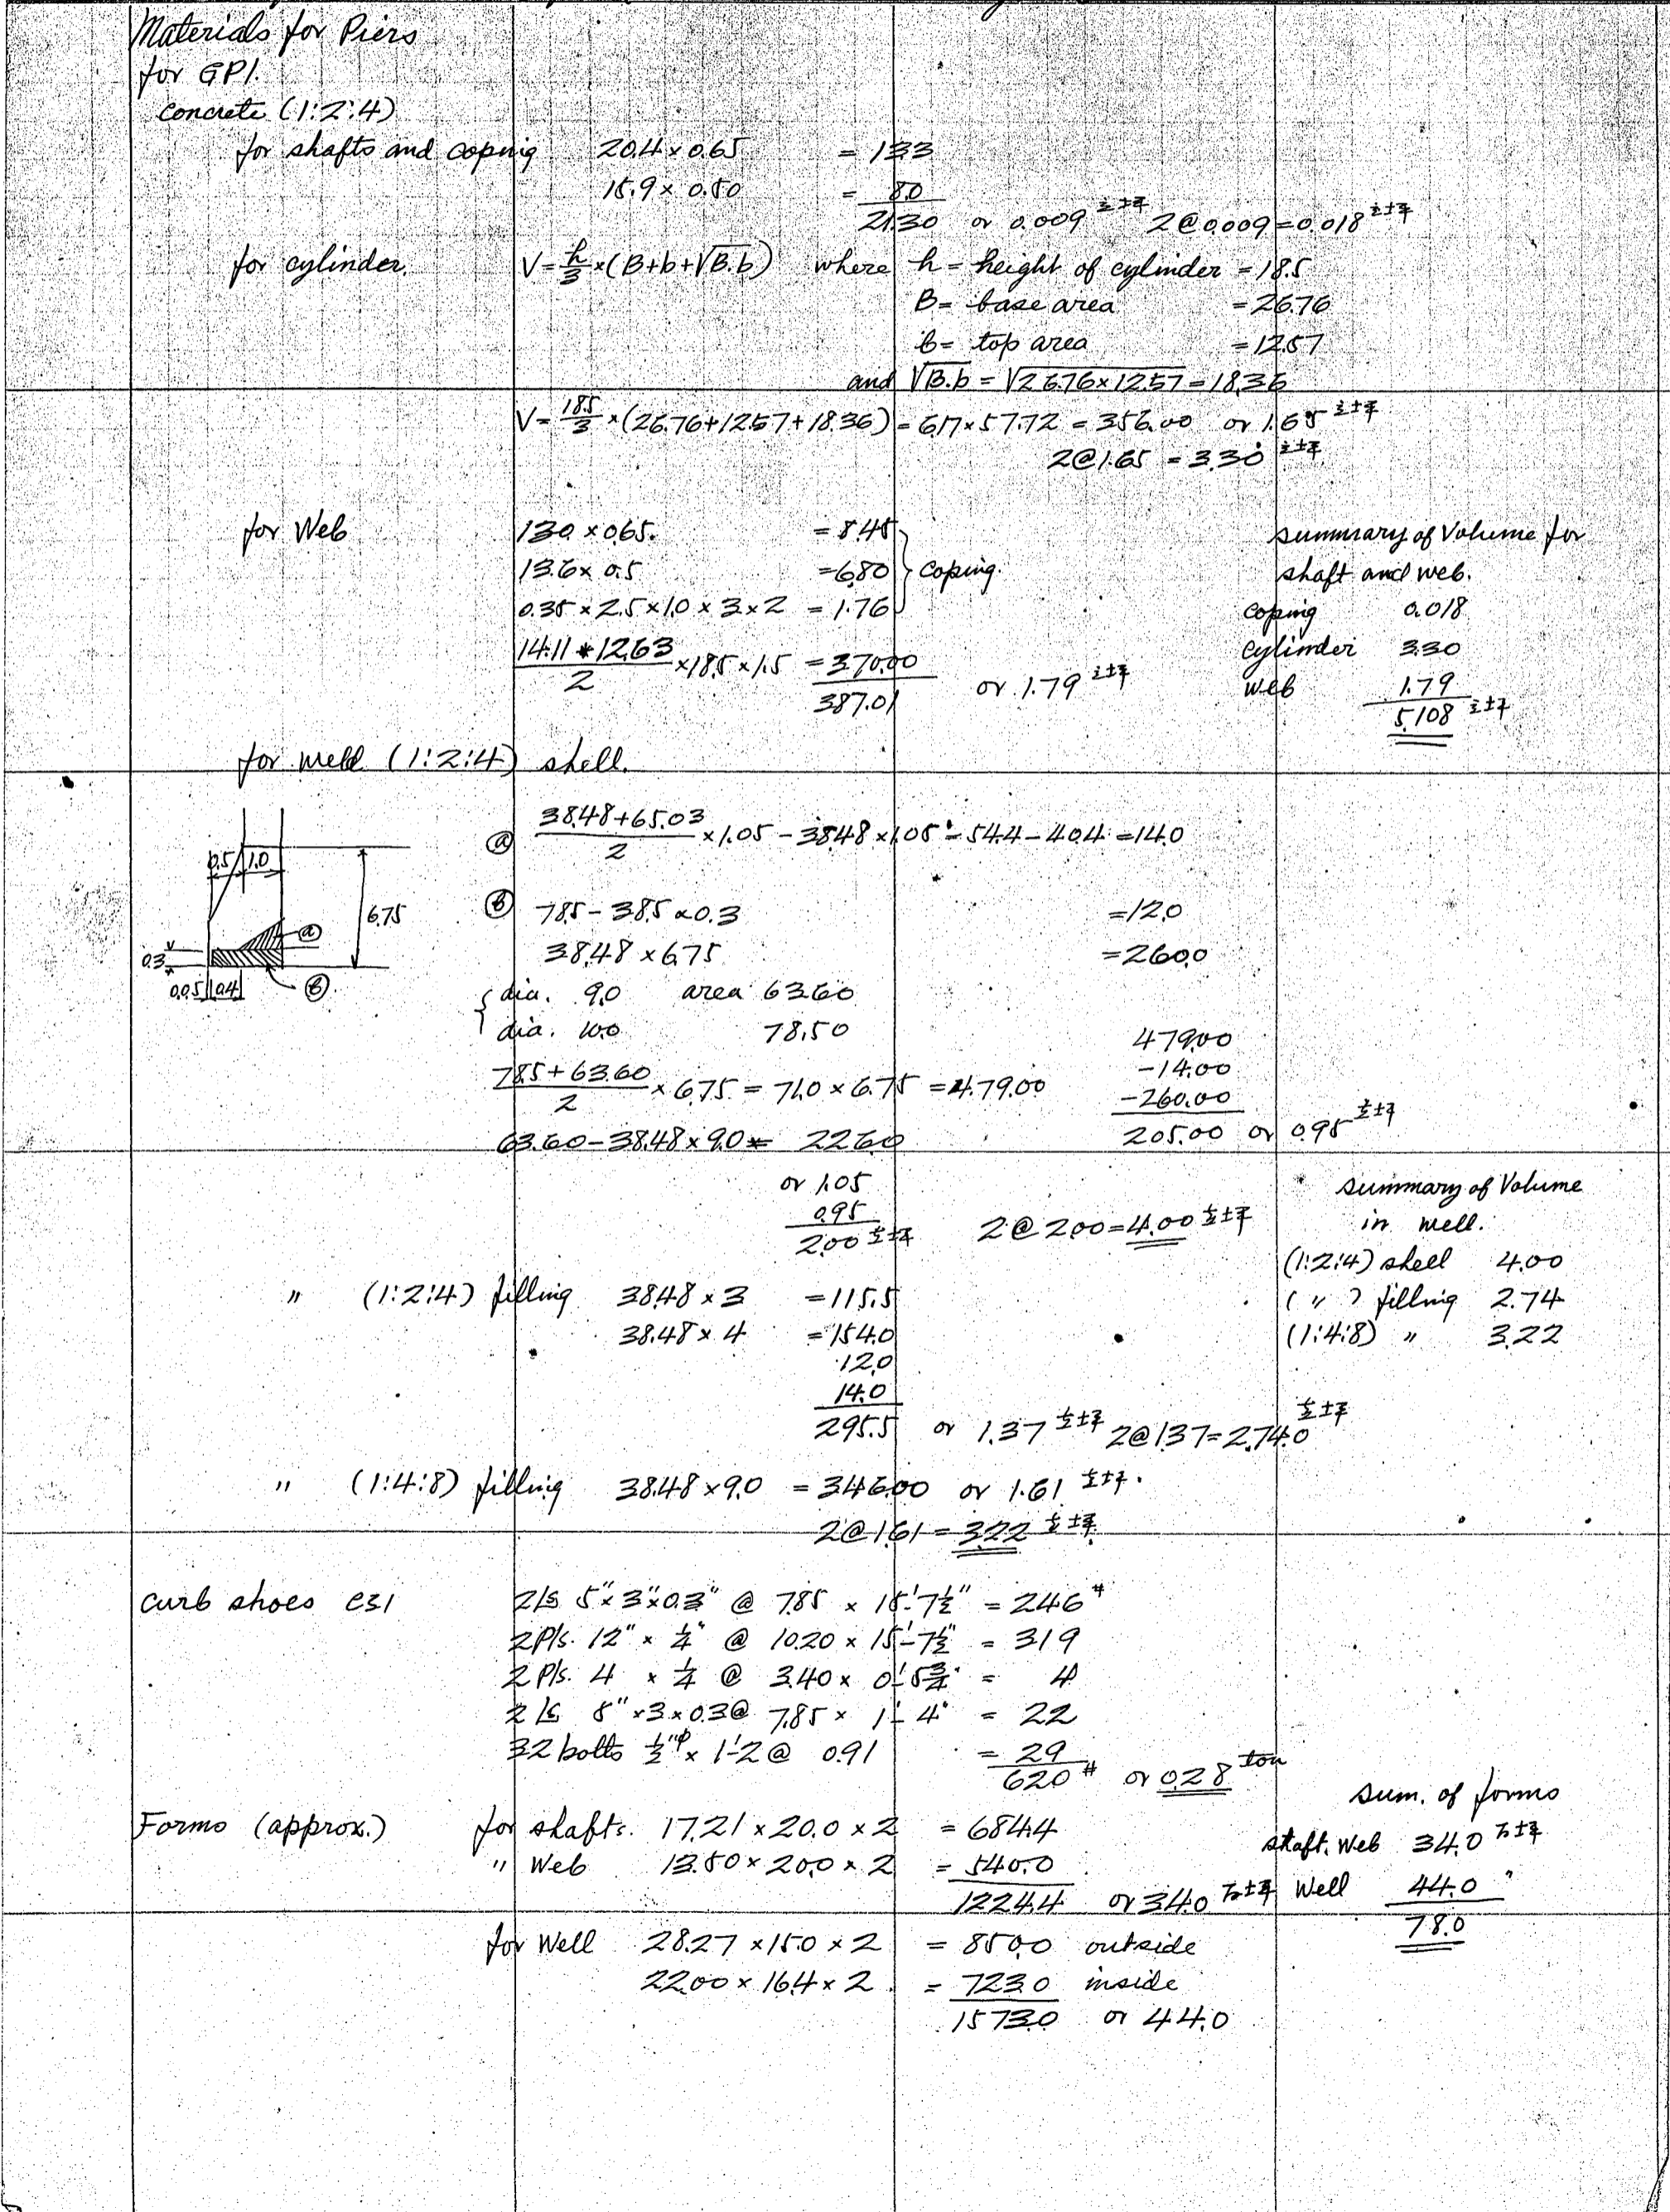 Materials for Piers
for GP1.
Concrete (1:2:4)
for shafts and coping 20.4 × 0.65 = 13.3
15.9 × 0.50 = 8.0
21.30 or 0.009 立坪 2@0.009 = 0.018 立坪
for cylinder. V = h/3 × (B+b+√B.b) where h = height of cylinder = 18.5
B = base area = 26.76
b = top area = 12.57
and √B.b = √26.76×12.57 = 18.36
V = 18.5/3 × (26.76+12.57+18.36) = 6.17 × 57.72 = 356.00 or 1.65 立坪
2@1.65 = 3.30 立坪
for Web 13.0 × 0.65. = 8.45
13.6 × 0.5 = 6.80 } coping.
0.35 × 2.5 × 1.0 × 3 × 2 = 1.76
14.11 + 12.63/2 × 18.5 × 1.5 = 370.00
387.01 or 1.79 立坪
summary of Volume for
shaft and web.
coping 0.018
cylinder 3.30
web 1.79
5.108 立坪
for well (1:2:4) shell.
0.5 1.0
6.75
ⓐ
0.3
0.05 0.4 ⓑ
ⓐ 38.48+65.03/2 × 1.05 - 38.48 × 1.05 = 54.4 - 40.4 = 14.0
ⓑ 78.5 - 38.5 × 0.3 = 12.0
38.48 × 6.75 = 260.0
{ dia. 9.0 area 63.60
dia. 10.0 78.50
78.5 + 63.60/2 × 6.75 = 71.0 × 6.75 = 479.00
479.00
-14.00
-260.00
205.00 or 0.95 立坪
63.60 - 38.48 × 9.0 = 226.0
or 1.05
0.95
2.00 立坪 2@2.00 = 4.00 立坪
summary of Volume
in well.
(1:2:4) shell 4.00
( " ) filling 2.74
(1:4:8) " 3.22
" (1:2:4) filling 38.48 × 3 = 115.5
38.48 × 4 = 154.0
12.0
14.0
295.5 or 1.37 立坪 2@1.37 = 2.74.0 立坪
" (1:4:8) filling 38.48 × 9.0 = 346.00 or 1.61 立坪.
2@1.61 = 3.22 立坪
Curb shoes cs1 2Ls 5" × 3" × 0.3" @ 7.85 × 15'-7½" = 246#
2Pls. 12" × ¼" @ 10.20 × 15'-7½" = 319
2 Pls. 4 × ¼ @ 3.40 × 0'-5¾" = 4
2 Ls 5" × 3 × 0.3 @ 7.85 × 1'-4" = 22
32 bolts ½"φ × 1'-2 @ 0.91 = 29
620# or 0.28 ton
Forms (approx.) for shafts. 17.21 × 20.0 × 2 = 684.4
" Web 13.50 × 20.0 × 2 = 540.0
1224.4 or 34.0 面坪
for Well 28.27 × 15.0 × 2 = 850.0 outside
22.00 × 16.4 × 2 = 723.0 inside
1573.0 or 44.0
sum. of forms
shaft. Web 34.0 面坪
Well 44.0 "
78.0